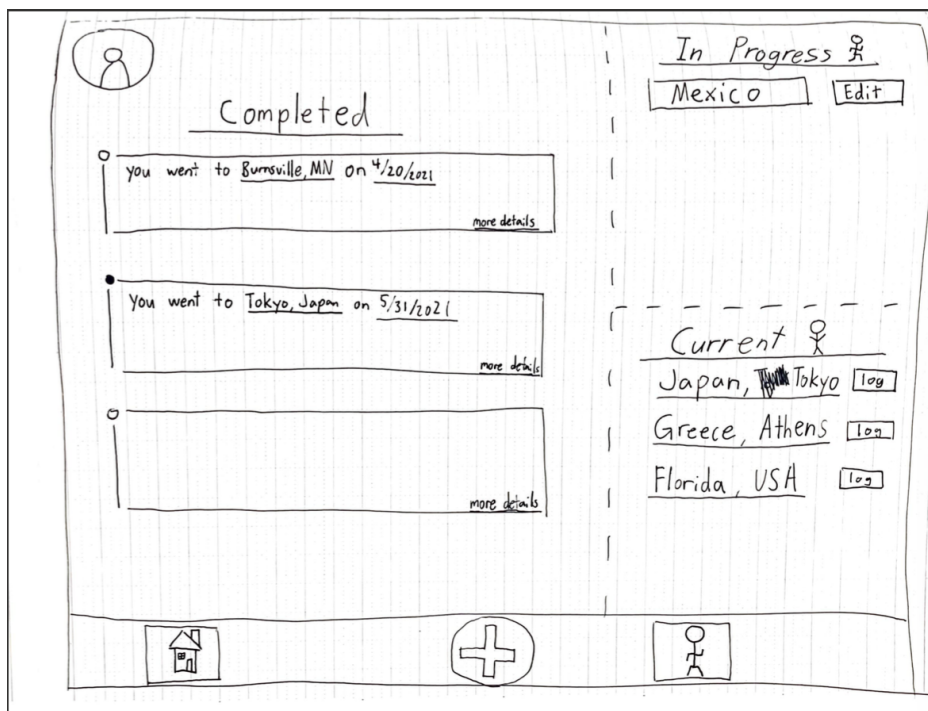 Completed
you went to Burnsville, MN on 4/20/2021
more details
You went to Tokyo, Japan on 5/31/2021
more details
more details
In Progress
Mexico Edit
Current
Japan, Tokyo log
Greece, Athens log
Florida, USA log